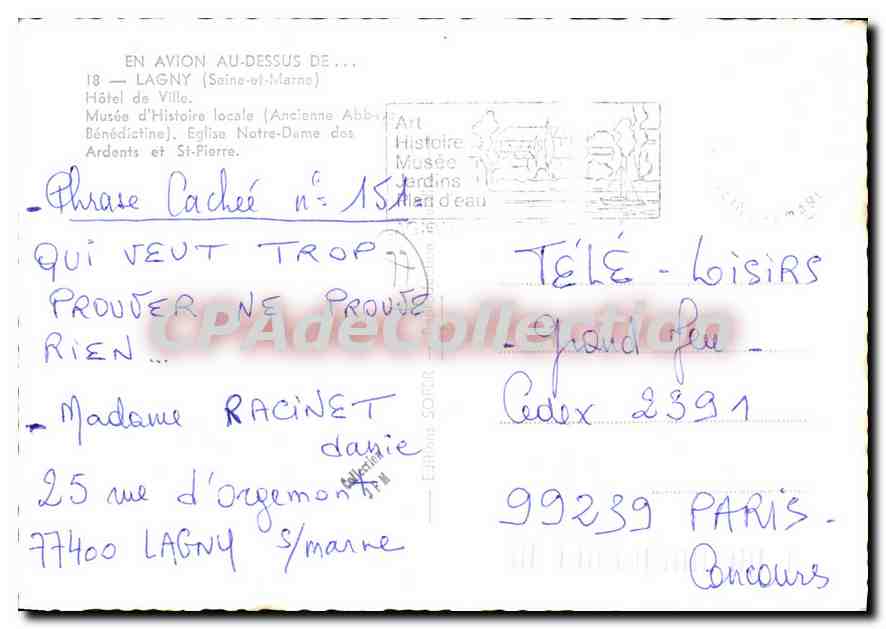 EN AVION AU-DESSUS DE...
18 — LAGNY (Seine-et-Marne)
Hôtel de Ville.
Musée d'Histoire locale (Ancienne Abbaye
Bénédictine). Eglise Notre-Dame des
Ardents et St-Pierre.
Art
Histoire
Musée
Jardins
Plan d'eau
- Phrase Cachée n° 151
QUI VEUT TROP
PROUVER NE PROUVE
RIEN...
- Madame RACINET
danie
25 rue d'Orgemont
77400 LAGNY s/marne
77
CPAdeCollection
Editions SOFER
Collection
JFM
TÉLÉ - LOISIRS
- Grand Jeu -
Cedex 2391
99239 PARIS -
Concours